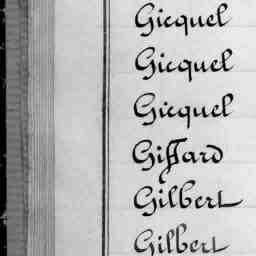 Gicquel
Gicquel
Gicquel
Giffard
Gilbert
Gilbert